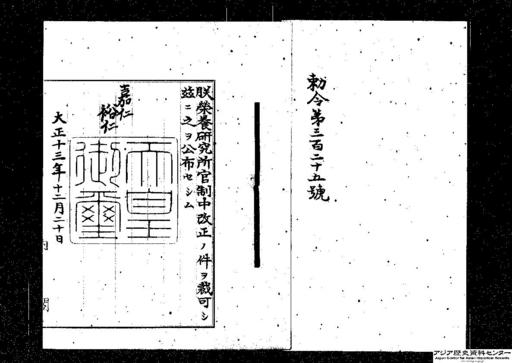 勅令第三百二十五號
朕榮養研究所官制中改正ノ件ヲ裁可シ
玆ニ之ヲ公布セシム
嘉仁
裕仁
天皇
御璽
大正十三年十二月二十日
内閣
アジア歴史資料センター
Japan Center for Asian Historical Records